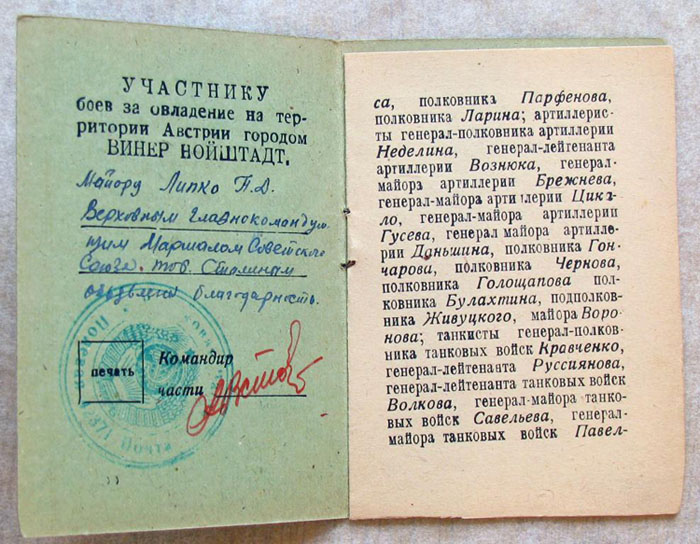 УЧАСТНИКУ
боев за овладение на тер-
ритории Австрии городом
ВИНЕР НОЙШТАДТ.
Майору Липко П.Д.
Верховным Главнокоманду
щим Маршалом Советского
Союза тов. Сталиным
объявлена благодарность.
печать
Командир
части
Полевая
Почта
са, полковника Парфенова,
полковника Ларина; артиллерис-
ты генерал-полковника артиллерии
Неделина, генерал-лейтенанта
артиллерии Вознюка, генерал-
майора артиллерии Брежнева,
генерал-майора артиллерии Цикъ-
ло, генерал-майора артиллерии
Гусева, генерал майора артилле-
рии Даньшина, полковника Гон-
чарова, полковника Чернова,
полковника Голощапова пол-
ковника Булахтина, подполков-
ника Живуцкого, майора Воро-
нова; танкисты генерал-полков-
ника танковых войск Кравченко,
генерал-лейтенанта Руссиянова,
генерал-лейтенанта танковых войск
Волкова, генерал-майора танко-
вых войск Савельева, генерал-
майора танковых войск Павел-